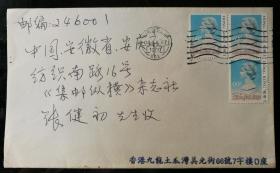 邮编：246001
中国.安徽省.安庆
纺织南路16号
《集邮纵横》杂志社
张健初 先生收
香港九龍土瓜灣美光街66號7字樓D座